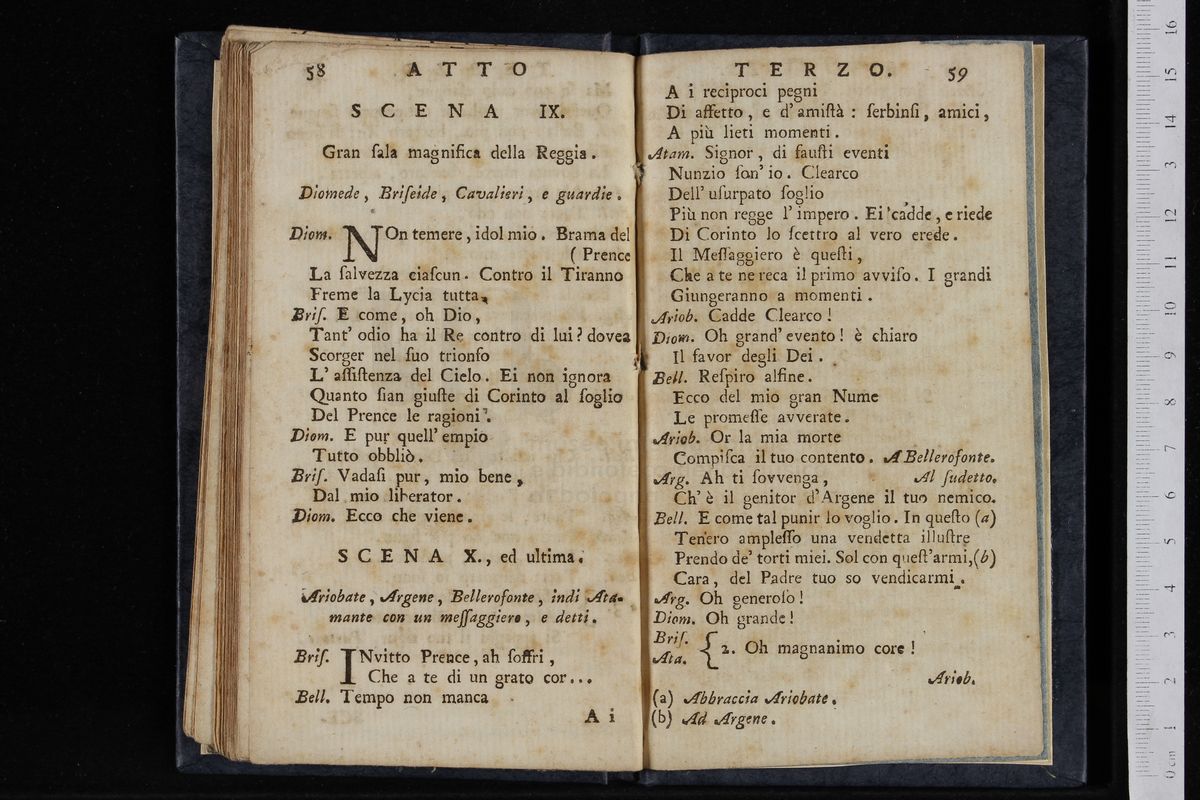 58 ATTO
SCENA IX.
Gran ſala magnifica della Reggia.
Diomede, Briſeide, Cavalieri, e guardie.
Diom. NOn temere, idol mio. Brama del
( Prence
La ſalvezza ciaſcun. Contro il Tiranno
Freme la Lycia tutta.
Briſ. E come, oh Dio,
Tant' odio ha il Re contro di lui? dovea
Scorger nel ſuo trionfo
L' aſſiſtenza del Cielo. Ei non ignora
Quanto ſian giuſte di Corinto al ſoglio
Del Prence le ragioni.
Diom. E pur quell' empio
Tutto obbliò.
Briſ. Vadaſi pur, mio bene,
Dal mio liberator.
Diom. Ecco che viene.
SCENA X., ed ultima.
Ariobate, Argene, Bellerofonte, indi Ata-
mante con un meſſaggiero, e detti.
Briſ. INvitto Prence, ah ſoffri,
Che a te di un grato cor...
Bell. Tempo non manca
A i
TERZO. 59
A i reciproci pegni
Di affetto, e d' amiſtà: ſerbinſi, amici,
A più lieti momenti.
Atam. Signor, di fauſti eventi
Nunzio ſon' io. Clearco
Dell' uſurpato ſoglio
Più non regge l' impero. Ei cadde, e riede
Di Corinto lo ſcettro al vero erede.
Il Meſſaggiero è queſti,
Che a te ne reca il primo avviſo. I grandi
Giungeranno a momenti.
Ariob. Cadde Clearco!
Diom. Oh grand' evento! è chiaro
Il favor degli Dei.
Bell. Reſpiro alfine.
Ecco del mio gran Nume
Le promeſſe avverate.
Ariob. Or la mia morte
Compiſca il tuo contento. A Bellerofonte.
Arg. Ah ti ſovvenga, Al ſudetto.
Ch' è il genitor d'Argene il tuo nemico.
Bell. E come tal punir lo voglio. In queſto (a)
Tenero ampleſſo una vendetta illuſtre
Prendo de' torti miei. Sol con queſt'armi,(b)
Cara, del Padre tuo so vendicarmi.
Arg. Oh generoſo!
Diom. Oh grande!
Briſ.
Ata. { 2. Oh magnanimo core!
Ariob.
(a) Abbraccia Ariobate.
(b) Ad Argene.
0 cm 1 2 3 4 5 6 7 8 9 10 11 12 13 14 15 16